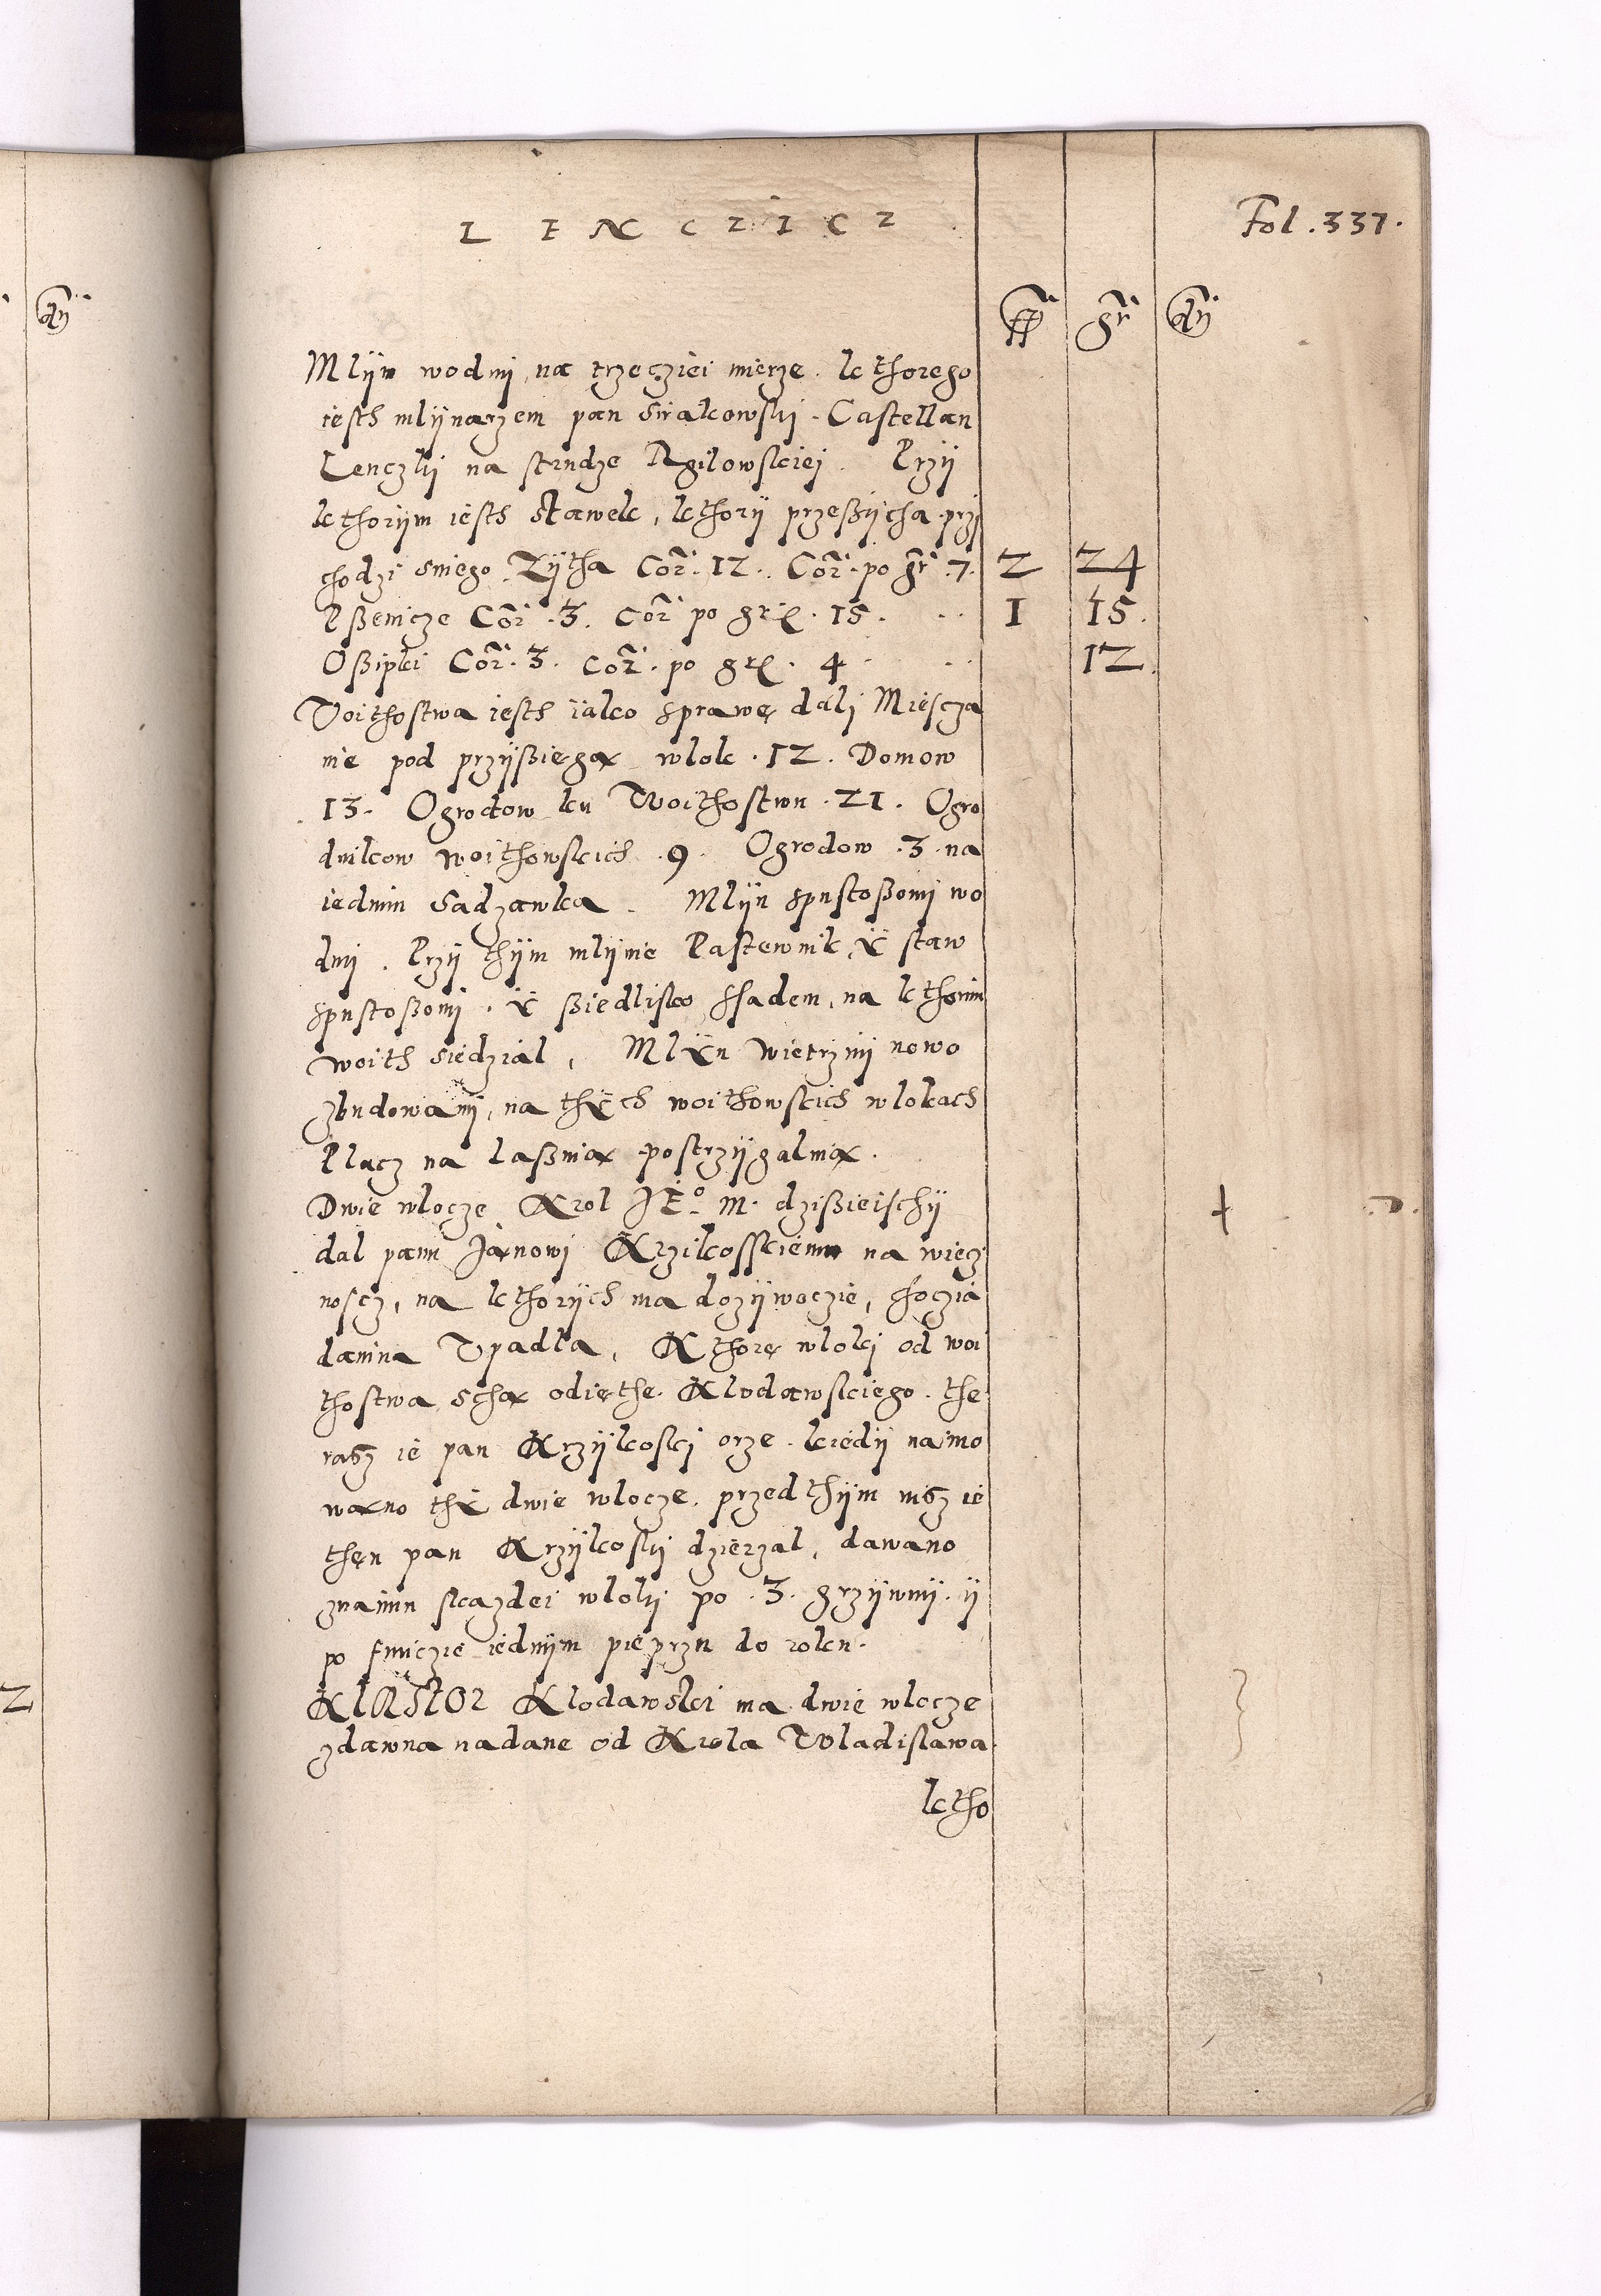 LENCZICZ
Fol. 337.
ff gr dn
Mlÿn wodni, na trzecziei mierze. kthorego
iesth mlÿnarzem pan Sirakowskÿ. Castellan
Lenczkÿ na strudze Rgilowskiej. Przÿ
kthorÿm iesth stawek, kthorÿ przeßÿcha. przÿ
chodzi sniego Zÿtha Cor. 12. Cor. po gr. 7. 2 24
Pßenicze Cor. 3. Cor po gr. 15. 1 15.
Oßipki Cor. 3. Cor. po gr. 4 12.
Woithostwa iesth iako sprawę dali Miescza
nie pod przÿßięgą wlok. 12. Domow
13. Ogrodow ku Woithostwu. 21. Ogro
dnikow woithowskich. 9. Ogrodow. 3. na
iednim Sadzawka. Mlÿn spustoßoni wo
dni. Przÿ thÿm mlÿnie Pastewnik, ÿ staw
spustoßoni. ÿ ßiedlisko ssadem, na kthorim
woith siedzial, Mlÿn wietrzni nowo
zbudowani, na thÿch woithowskich wlokach
Placz na laßnią postrzÿgalnią.
Dwie wlocze Krol JEº. M. dzißieischÿ
dal panu Janowi Krzikosskiemu na wiecz
noscz, na kthorÿch ma dozÿwoczie, choczia
danina Vpadla, Kthorę wloki od woi
thostwa, schą odięthe. Klodawskiego. the
rasz ie pan Krzÿkoski orze. kiedÿ naimo
wano thÿ dwie wlocze. przed thÿm nisz ie
then pan Krzÿkoskÿ dzierzal, dawano
znaimu skazdei wlokÿ po. 3. grzÿwnÿ. ÿ
po funczie iednÿm pieprzu do roku.
KLASTOR Klodawski ma dwie wlocze
zdawna nadane od Krola Wladislawa.
ktho